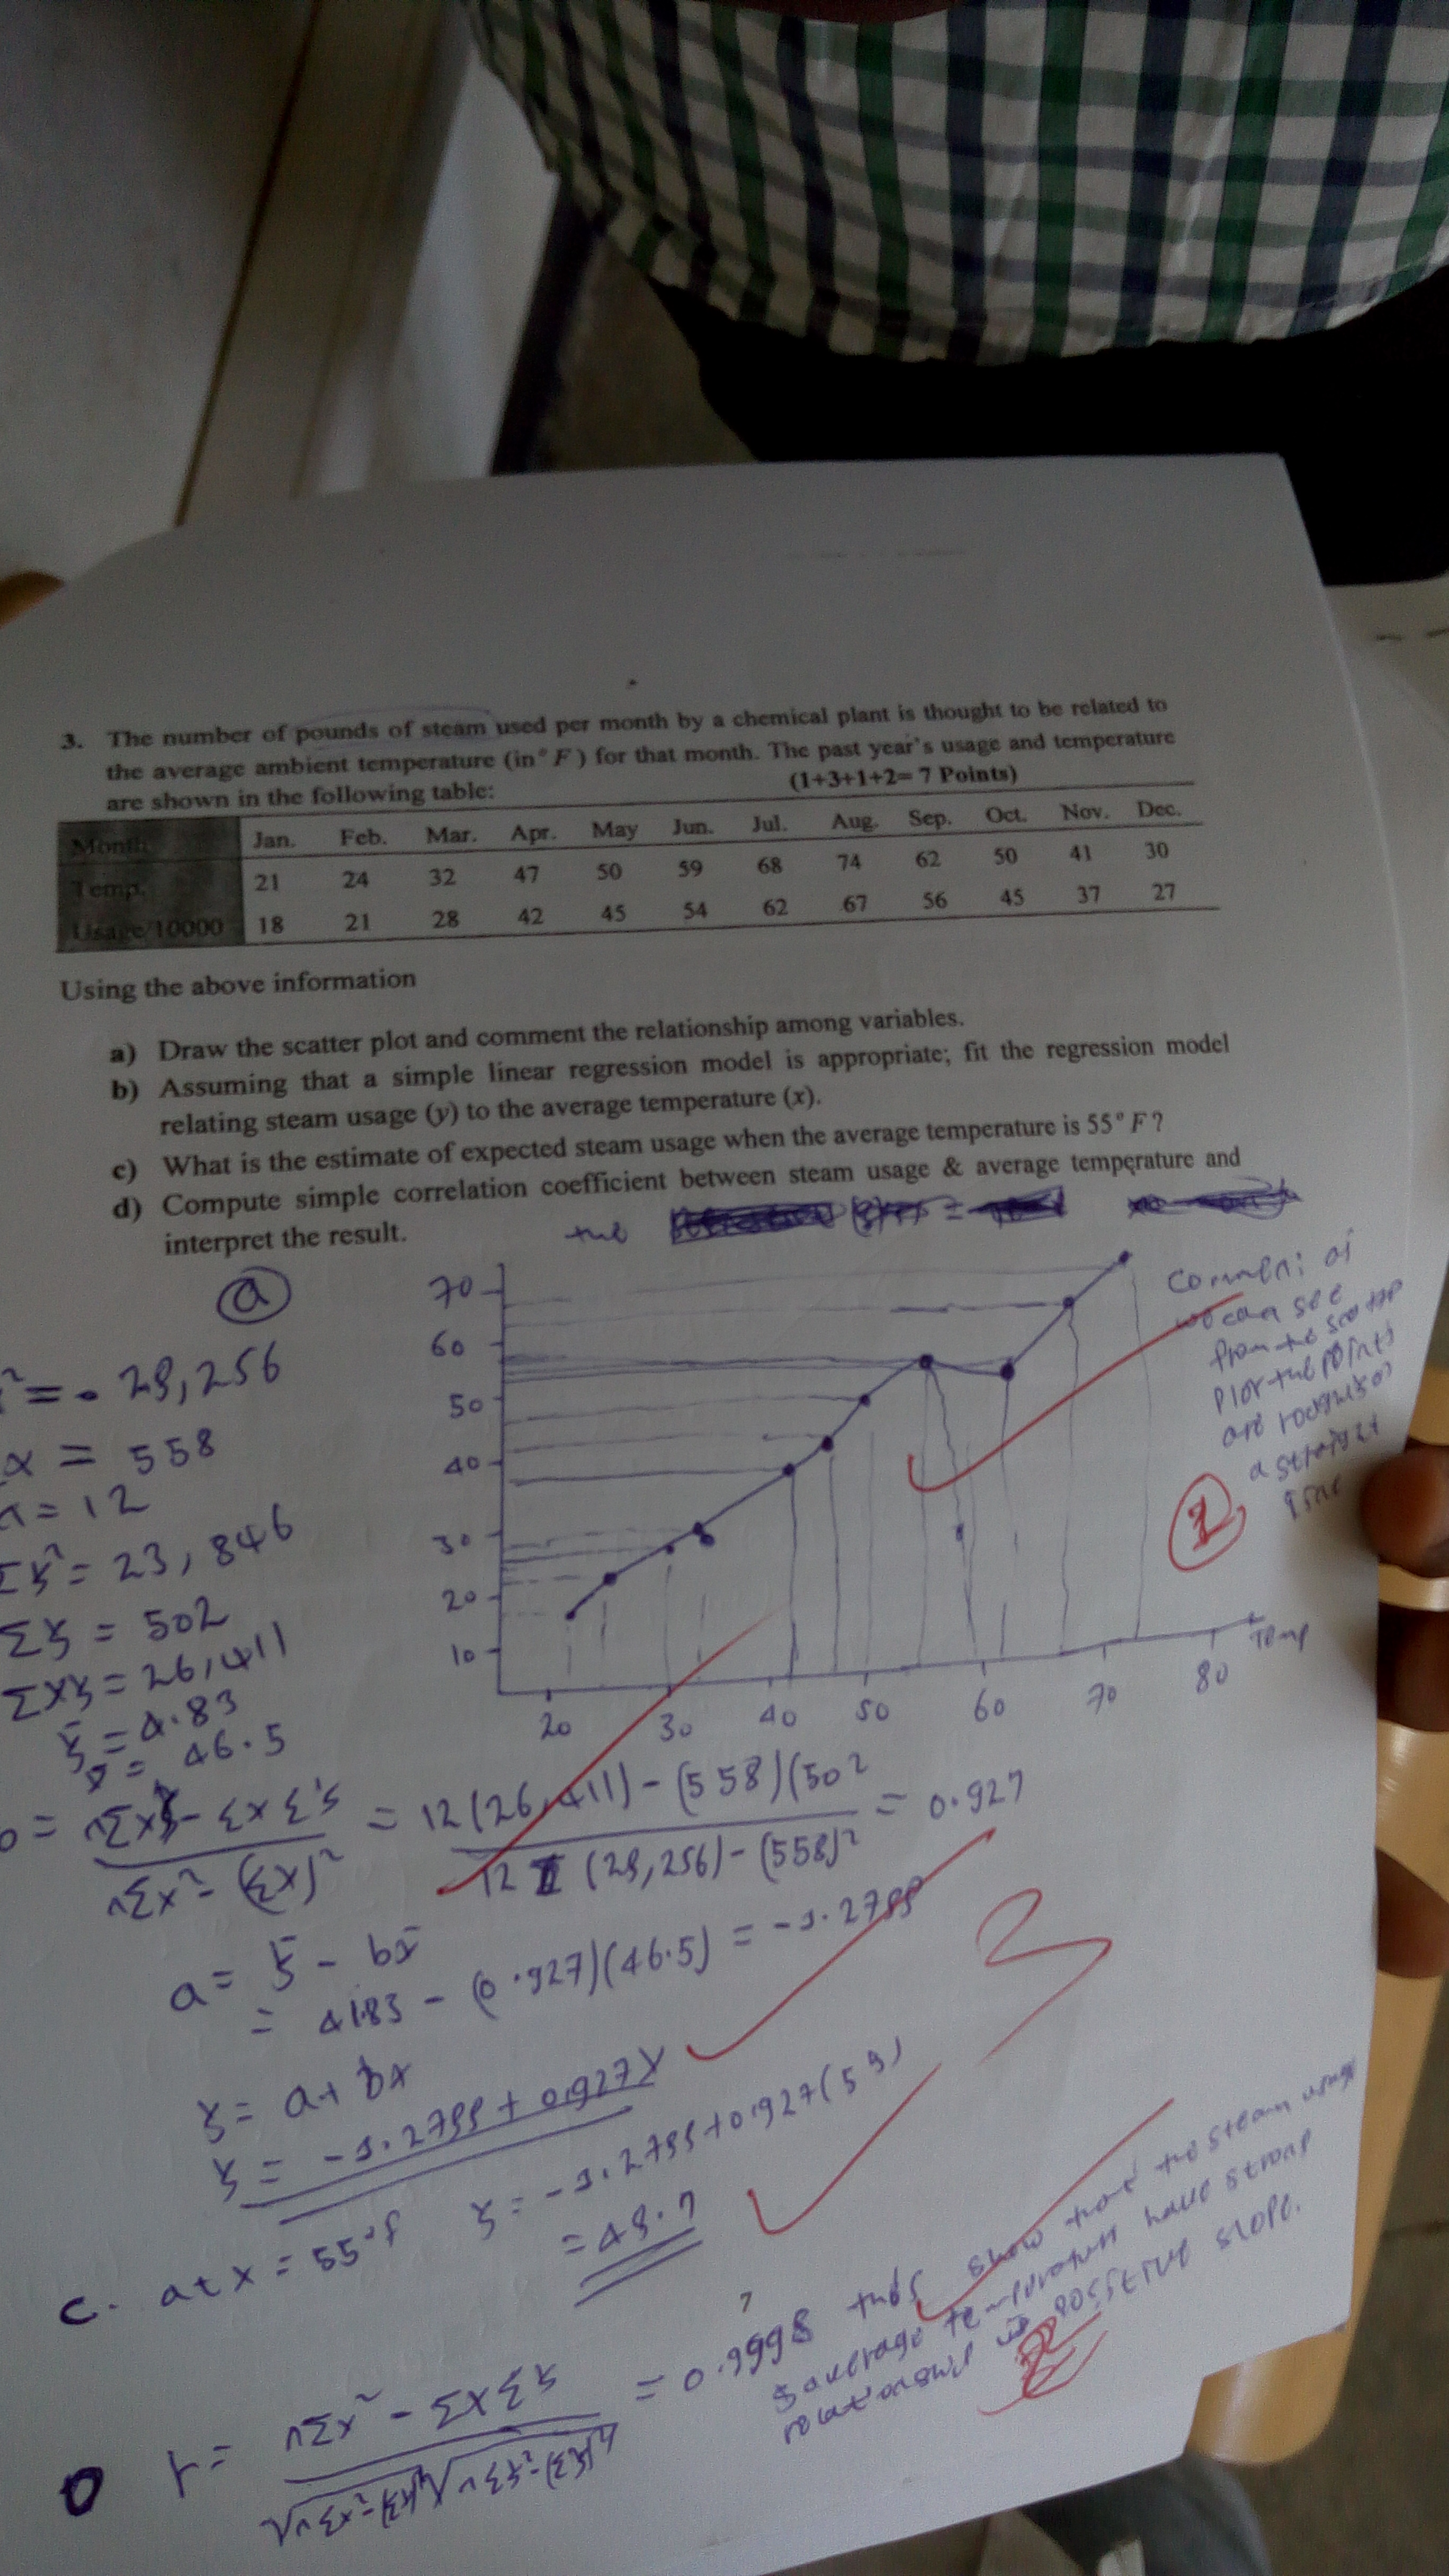 3. The number of pounds of steam used per month by a chemical plant is thought to be related to
the average ambient temperature (in° F) for that month. The past year's usage and temperature
are shown in the following table: (1+3+1+2= 7 Points)
Month Jan. Feb. Mar. Apr. May Jun. Jul. Aug. Sep. Oct. Nov. Dec.
Temp. 21 24 32 47 50 59 68 74 62 50 41 30
Usage/10000 18 21 28 42 45 54 62 67 56 45 37 27
Using the above information
a) Draw the scatter plot and comment the relationship among variables.
b) Assuming that a simple linear regression model is appropriate; fit the regression model
relating steam usage (y) to the average temperature (x).
c) What is the estimate of expected steam usage when the average temperature is 55° F?
d) Compute simple correlation coefficient between steam usage & average temperature and
interpret the result.
the
a
70
60
50
40
30
20
10
20 30 40 50 60 70 80 Temp
Comment: as
we can see
from the scatter
plot the points
are roughly on
a straight
line
1
² = 29,256
x = 558
n = 12
Σy² = 23,846
Σy = 502
Σxy = 26,411
ȳ = 4.83
x̄ = 46.5
b = nΣxy - ΣxΣy / nΣx² - (Σx)² = 12(26,411) - (558)(502 / 12 (29,256) - (558)² = 0.927
a = ȳ - bx̄
= 41.83 - (0.927)(46.5) = -1.2799
y = a + bx
y = -1.2799 + 0.927x
3
c. at x = 55°F y = -1.2799 + 0.927(55)
= 49.7
r = nΣx² - ΣxΣy / √nΣx²-(Σx)² √nΣy²-(Σy)² = 0.9998 this show that the steam usage
& average temperature have strong
relationship positive slope.
2